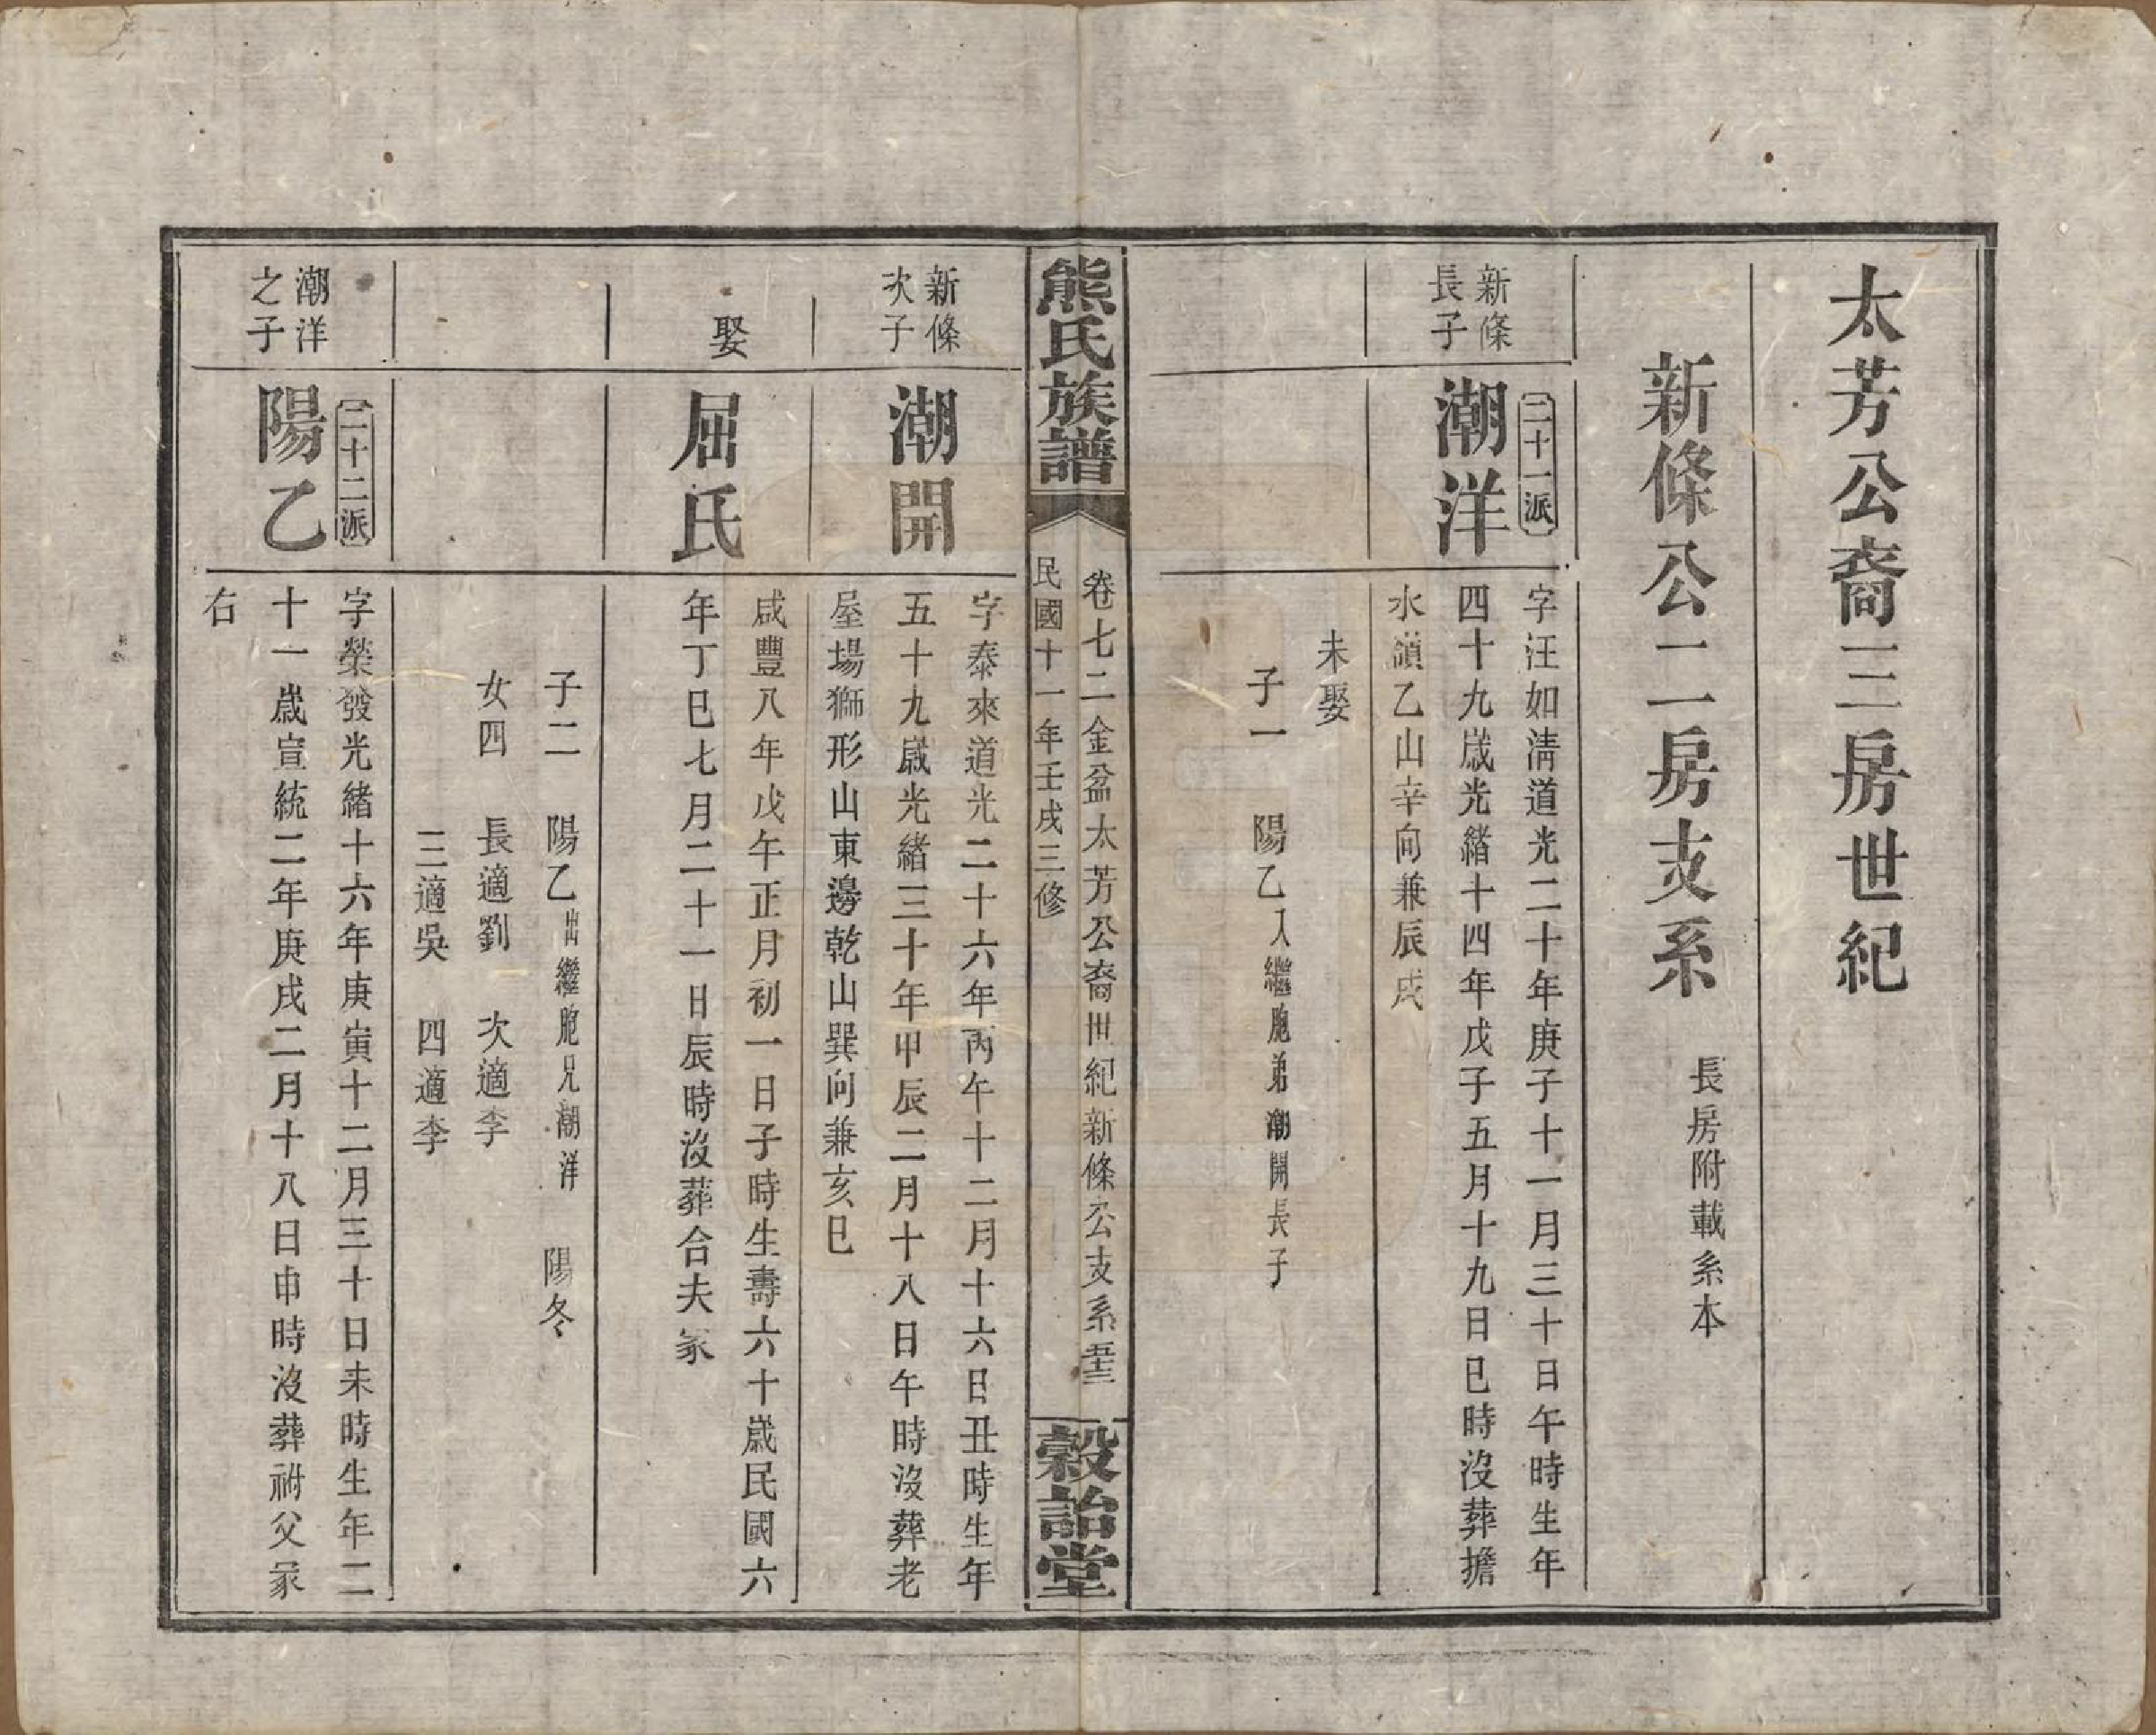 太芳公裔三房世紀
新條公二房支系
長房附載系本
新條
長子
二十一派
潮洋
字汪如淸道光二十年庚子十一月三十日午時生年
四十九歲光緒十四年戊子五月十九日巳時沒葬擔
水嶺乙山辛向兼辰戌
未娶
子一 陽乙入繼胞弟潮開長子
熊氏族譜
卷七二金盆太芳公裔世紀新條公支系
民國十一年壬戌三修
穀詒堂
新條
次子
潮開
字泰來道光二十六年丙午十二月十六日丑時生年
五十九歲光緒三十年甲辰二月十八日午時沒葬老
屋場獅形山東邊乾山巽向兼亥巳
娶
屈氏
咸豐八年戊午正月初一日子時生壽六十歲民國六
年丁巳七月二十一日辰時沒葬合夫冢
子二 陽乙出繼胞兄潮洋 陽冬
女四 長適劉 次適李
三適吳 四適李
潮洋
之子
二十二派
陽乙
字榮發光緒十六年庚寅十二月三十日未時生年二
十一歲宣統二年庚戌二月十八日申時沒葬祔父冢
右